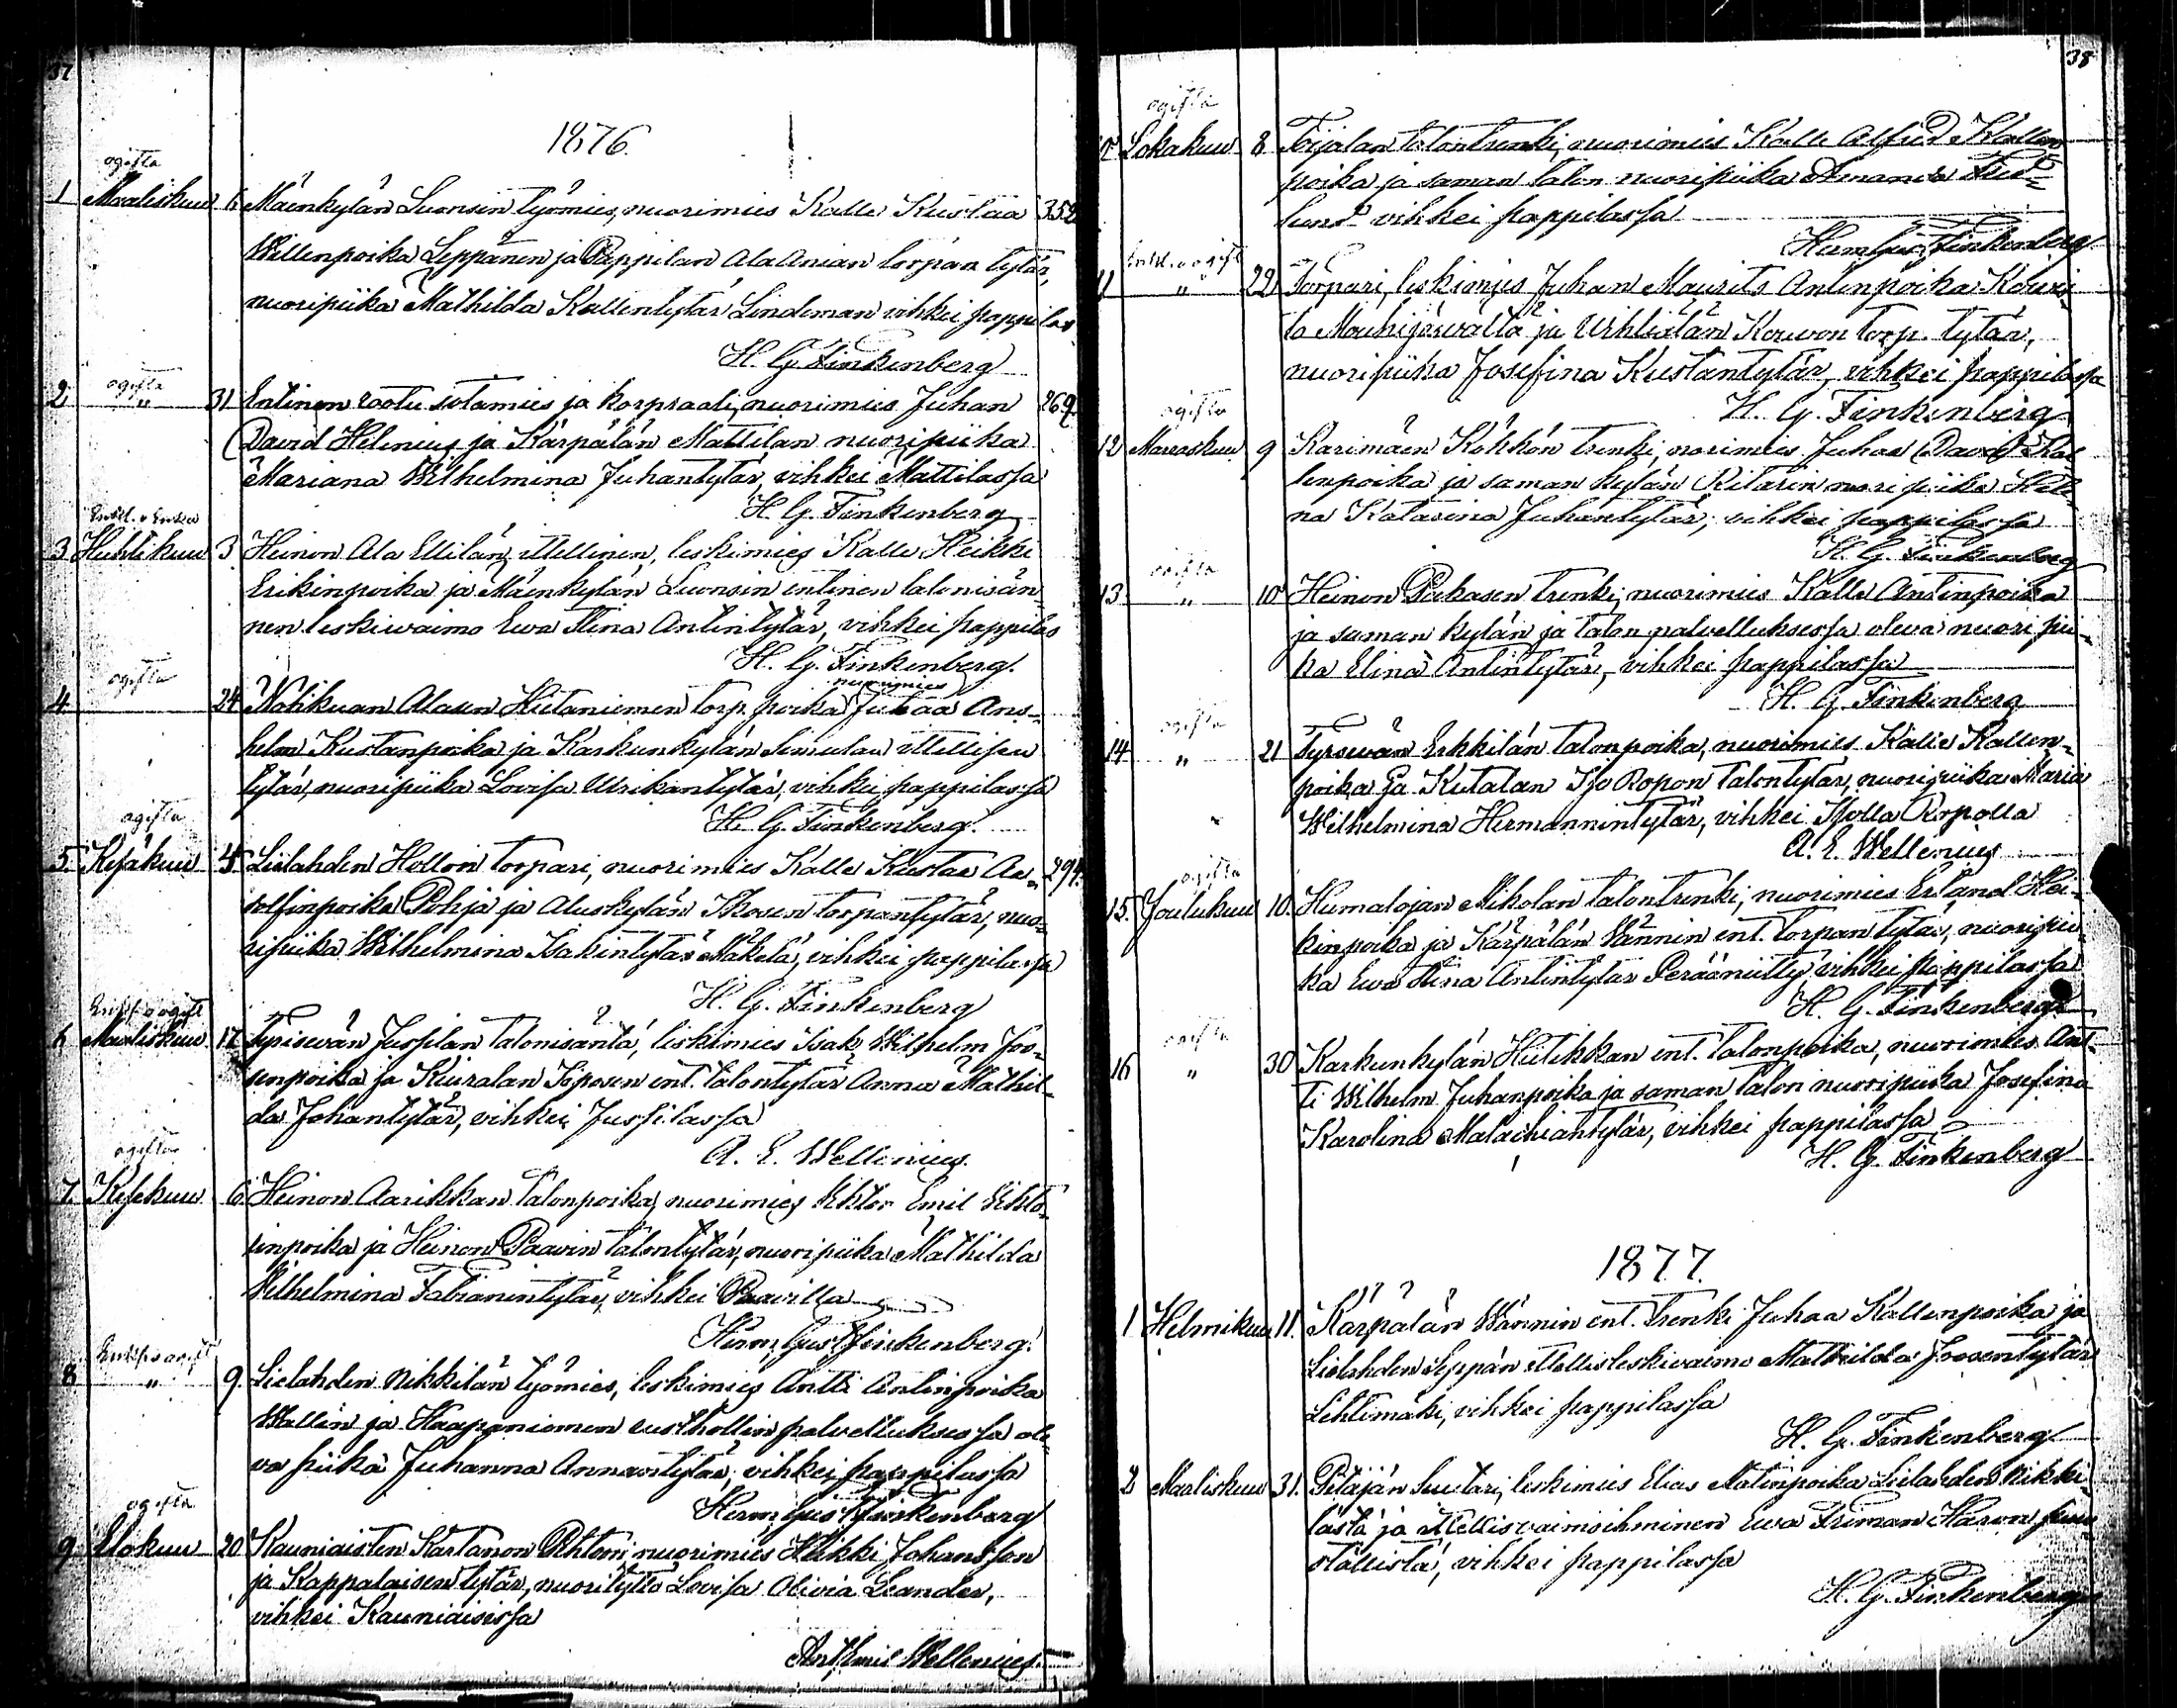 37
1876.
ogifta
1 Maaliskuu 6 Mäenkylän Luonsin työmies, nuorimies Kalle Kustaa 352
Willenpoika Leppänen ja Pappilan Ala Anian torpan tytär,
nuoripiika Mathilda Kallentytär Lindeman vihkei pappilas
H. G. Finkenberg
ogifta
2 " 31 Entinen rootu sotamies ja korpraali, nuorimies Juhan 269.
David Helenius ja Kärpälän Mattilan nuoripiika
Mariana Wilhelmina Juhantytär, vihkei Mattilassa
H. G. Finkenberg
Enkl. o Enka
3 Huhtikuu 3. Heinon Ala Ellilän ittellinen, leskimies Kalle Heikki
Erikinpoika ja Mäenkylän Luonsin entinen talonisän
nen leskiwaimo Ewa Stina Antintytär, vihkei pappilas
H. G. Finkenberg.
ogifta
nuorimies
4. 24 Nohkuan Alasen Hietaniemen torp. poika Juhaa Ans-
helm Kustanpoika ja Karkunkylän ittellisen
tytär, nuoripiika Lovisa Urikantytär, vihkei pappilassa
H. G. Finkenberg.
ogifta
5. Kesäkuu 4 Lielahden Hollon torpari, nuorimies Kalle Kustaa Aa- 294.
tolfinpoika Pohja ja Aluskylän Ikosen torpantytär, nuo-
ripiika Wilhelmina Isakintytär Mäkelä, vihkei pappilassa
H. G. Finkenberg
Enkl. o ogift
6 Maaliskuu 17 Jussilan talonisäntä, leskimies Isak Wilhelm Joo-
senpoika ja Kiuralan Soposen ent. talontytär Anna Mathil-
da Johantytär, vihkei Jussilassa
A. E. Wellenius.
ogifta
7. Kesäkuu 6. Heinon Aarikkan talonpoika, nuorimies Wiktor Emil Wikto-
rinpoika ja Heinon Paawin talontytär, nuoripiika Mathilda
Wilhelmina Fabianintytär, vihkei Paavilla
Herm. Gust. Finkenberg.
Enkl. o ogift
8 " 9. Lielahden Nikkilän työmies, leskimies Antti Antinpoika
Wallin ja Haapaniemen rusthollin palvelluksessa ole-
va piika Juhanna Annantytär, vihkei pappilassa
Herm. Gust. Finkenberg
ogifta
9. Elokuu 20 Kauniaisten Kartanon Pehtori nuorimies Heikki Johansson
ja Kappalaisen tytär, nuorityttö Lovisa Olivia Leander,
vihkei Kauniaisissa
Ant. Emil Wellenius.
38
ogifta
10 Lokakuu 8. Toijalan talontrenki, nuorimies Kalle Alfred Kallen
poika ja saman talon nuoripiika Amanda Fred-
lund vihkei pappilassa
Herm. Gust. Finkenberg
Enkl. o ogift
11 " 22. Torpari, leskimies Juhan Maurits Antinpoika Kouri-
la Mouhijärwältä ja Urhliälän Kouvon torp. tytär,
nuoripiika Josefina Kustantytär, vihkei pappilassa
H. G. Finkenberg
ogifta
12 Marraskuu 9 Karimäen Köhkön trenki, nuorimies Juhaa David Kal
lenpoika ja saman kylän Kitarin nuoripiika Hele
na Katarina Juhantytär, vihkei pappilassa
H. G. Finkenberg
ogifta
13. " 10 Heinon Pukasen trenki, nuorimies Kalle Antinpoika
ja saman kylän ja talon palvelluksessa oleva nuori pii-
ka Elina Antintytär, vihkei pappilassa
H. G. Finkenberg
ogifta
14 " 21 Tyrwään Erkkilän talonpoika, nuorimies Kalle Kallen-
poika ja Kutalan Iso Ropon talontytär, nuoripiika Maria
Wilhelmina Hermannintytär, vihkei Isolla Ropolla
A. E. Wellenius
ogifta
15. Joulukuu 10. Humalojan Mikolan talontrenki, nuorimies Erland Hei-
kinpoika ja Kärpälän Wännin ent. torpan tytär, nuoripii-
ka Ewa Stina Antintytär Perääniitty, vihkei pappilassa
H. G. Finkenberg
ogifta
16 " 30 Karkunkylän Hietikkan ent. talonpoika, nuorimies Ant-
ti Wilhelm Juhanpoika ja saman talon nuoripiika Josefina
Karolina Malachiantytär, vihkei pappilassa
H. G. Finkenberg
1877.
1 Helmikuu 11. Kärpälän Wännin ent. trenki Juhaa Kallenpoika ja
Lielahden Seppän ittellisleskiwaimo Mathilda Joosentytär
Lehtimäki, vihkei pappilassa
H. G. Finkenberg
2 Maaliskuu 31. Pitäjän suutari, leskimies Elias Matinpoika Lielahden Nikki-
lästä ja ittellisvaimoihminen Ewa Friman
ställistä, vihkei pappilassa
H. G. Finkenberg